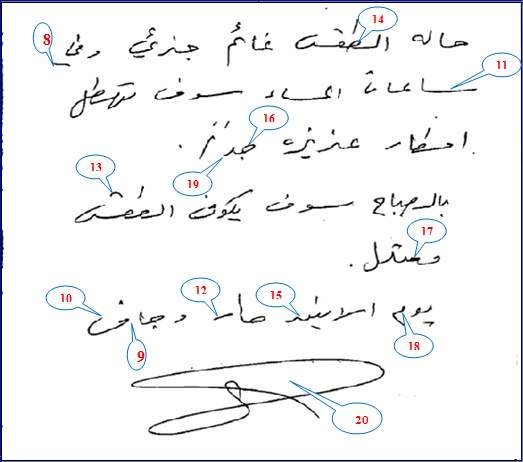 14
حاله الطقس غائم جزئي وفي 8
ساعات المساء سوف تهطل 11
امطار غزيزه جداً. 16
19
13
بالصباح سوف يكون الطقس
معتدل. 17
يوم الاثنين حار وجاف
10 12 15
9 18
20